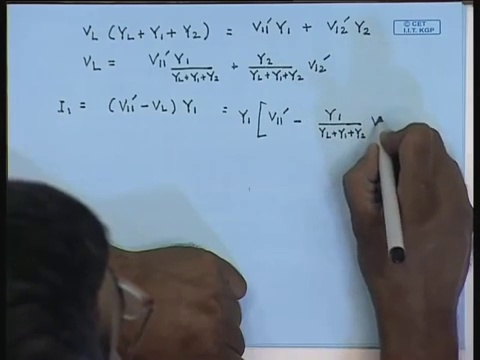 © CET
I.I.T. KGP
V_L (Y_L + Y_1 + Y_2) = V_11' Y_1 + V_12' Y_2
V_L = V_11' Y_1 / (Y_L + Y_1 + Y_2) + Y_2 / (Y_L + Y_1 + Y_2) V_12'
I_1 = (V_11' - V_L) Y_1 = Y_1 [ V_11' - Y_1 / (Y_L + Y_1 + Y_2) V